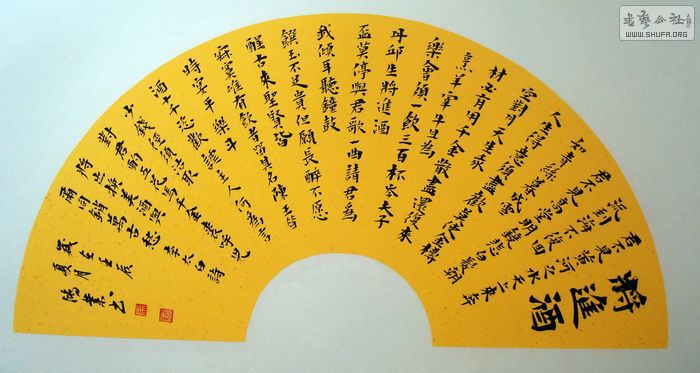 將進酒
君不見黃河之水天上來奔
流到海不復回
君不見高堂明鏡悲白髮朝
如青絲暮成雪
人生得意須盡歡莫使金樽
空對月天生我
材必有用千金散盡還復來
烹羊宰牛且為
樂會須一飲三百杯岑夫子
丹邱生將進酒
盃莫停與君歌一曲請君為
我傾耳聽鐘鼓
饌玉不足貴但願長醉不願
醒古來聖賢皆
寂寞惟有飲者留其名陳王昔
時宴平樂斗
酒十千恣歡謔主人何為言
少錢徑須沽取
對君酌五花馬千金裘呼兒
將出換美酒與
爾同銷萬古愁 李太白詩
歲在壬辰
夏月 鴻業書
書藝公社
WWW.SHUFA.ORG